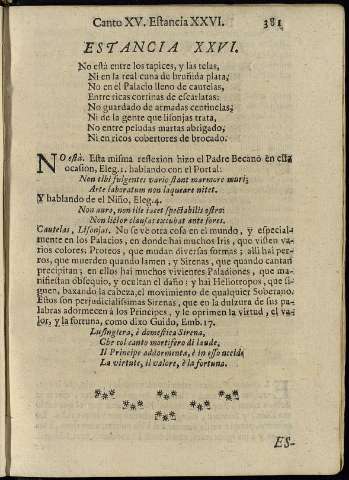 Canto XV. Estancia XXVI. 381
ESTANCIA XXVI.
No està entre los tapices, y las telas,
Ni en la real cuna de bruñida plata,
No en el Palacio lleno de cautelas,
Entre ricas cortinas de escarlatas:
No guardado de armadas centinelas;
Ni de la gente que lisonjas trata,
No entre peludas martas abrigado,
Ni en ricos cobertores de brocado.
NO està. Esta misma reflexion hizo el Padre Becano en esta
ocasion, Eleg. 1. hablando con el Portal:
Non tibi fulgentes vario stant marmore muri;
Arte laboratum non laqueare nitet.
Y hablando de el Niño, Eleg. 4.
Non auro, non iste iacet spectabilis ostro:
Non lictor clausas excubat ante fores.
Cautelas, Lisonjas. No se vè otra cosa en el mundo, y especial-
mente en los Palacios, en donde hai muchos Iris, que visten va-
rios colores: Proteos, que mudan diversas formas; alli hai per-
ros, que muerden quando lamen; y Sirenas, que quando cantan
precipitan; en ellos hai muchos vivientes Paladiones, que ma-
nifiestan obsequio, y ocultan el daño; y hai Heliotropos, que si-
guen, baxando la cabeza, el movimiento de qualquier Soberano.
Estos son perjudicialissimas Sirenas, que en la dulzura de sus pa-
labras adormecen à los Principes, y le oprimen la virtud, el va-
lor, y la fortuna, como dixo Guido, Emb. 17.
Lusingiera, è domestica Sirena,
Che col canto mortifero di laude,
Il Principe addormenta, è in esso
La virtute, il valore, è la fortuna.
ES-